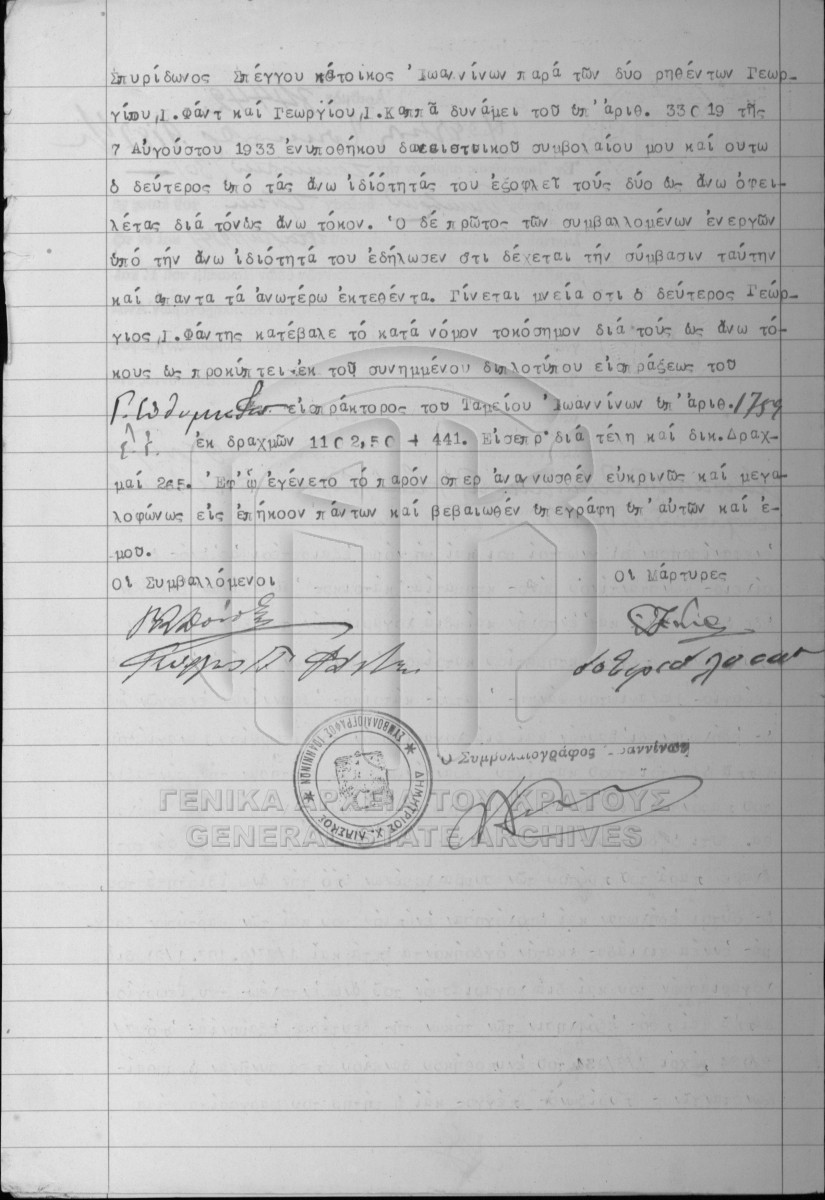 Σπυρίδωνος Σπέγγου κάτοικος Ἰωαννίνων παρά τῶν δύο ρηθέντων Γεωρ-
γίου,Ι.Φάντ καί Γεωργίου,Ι.Καππᾶ δυνάμει τοῦ ὑπ'ἀριθ. 33019 τῆς
7 Αὐγούστου 1933 ἐνυποθήκου δανειστικοῦ συμβολαίου μου καί ουτω
ὁ δεύτερος ὑπό τάς ἄνω ἰδιότητάς του ἐξοφλεῖ τούς δύο ὡς ἄνω ὀφει-
λέτας διά τόνὡς ἄνω τόκον. Ὁ δέ πρῶτος τῶν συμβαλλομένων ἐνεργῶν
ὑπό τήν ἄνω ἰδιότητά του ἐδήλωσεν ὅτι δέχεται τήν σύμβασιν ταύτην
καί απαντα τά ἀνωτέρω ἐκτεθέντα. Γίνεται μνεία οτι ὁ δεύτερος Γεώρ-
γιος,Ι.Φάντης κατέβαλε τό κατά νόμον τοκόσημον διά τούς ὡς ἄνω τό-
κους ὡς προκύπτει ἐκ τοῦ συνημμένου διπλοτύπου εἰσπράξεως τοῦ
εἰσπράκτορος τοῦ Ταμείου Ἰωαννίνων ὑπ'ἀριθ. 1759
ἐκ δραχμῶν 1102,50 + 441. Εἰσεπρ.διά τέλη καί δικ.Δραχ-
μαί 205. Ἐφ'ᾧ ἐγένετο τό παρόν οπερ ἀναγνωσθέν εὐκρινῶς καί μεγα-
λοφώνως εἰς ἐπήκοον πάντων καί βεβαιωθέν ὑπεγράφη ὑπ'αὐτῶν καί ἐ-
μοῦ.
Οἱ Συμβαλλόμενοι Οἱ Μάρτυρες
Ὁ Συμβολαιογράφος - Ἰωαννίνων
ΣΥΜΒΟΛΑΙΟΓΡΑΦΟΣ ΙΩΑΝΝΙΝΩΝ * ΔΗΜΗΤΡΙΟΣ Χ. ΛΙΑΣΚΟΣ *
ΓΕΝΙΚΑ ΑΡΧΕΙΑ ΤΟΥ ΚΡΑΤΟΥΣ
GENERAL STATE ARCHIVES